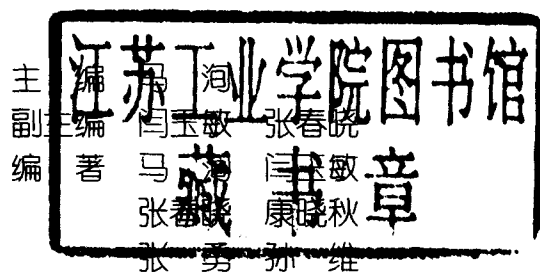 江苏工业学院图书馆
藏书章
主 编 马 洵
副主编 闫玉敏 张春晓
编 著 马 洵 闫玉敏
张春晓 康晓秋
张 勇 孙 维